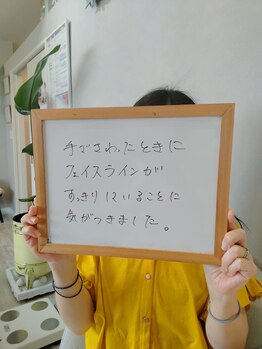 手でさわったときに
フェイスラインが
すっきりしていることに
気がつきました。